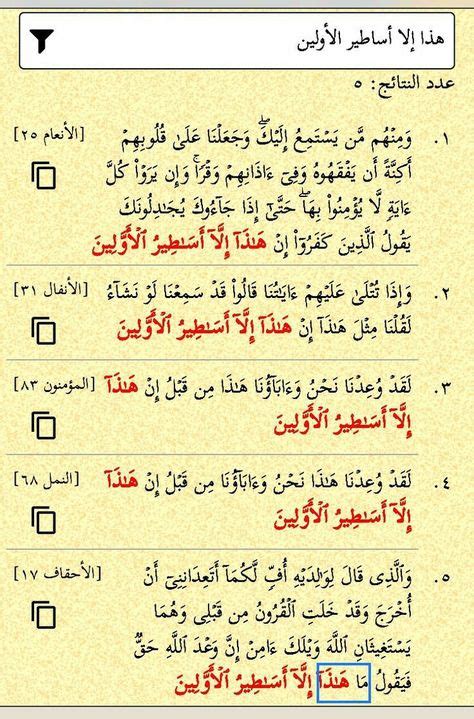 هذا إلا أساطير الأولين
عدد النتائج: ٥
١. وَمِنْهُم مَّن يَسْتَمِعُ إِلَيْكَۖ وَجَعَلْنَا عَلَىٰ قُلُوبِهِمْ [الأنعام ٢٥]
أَكِنَّةً أَن يَفْقَهُوهُ وَفِىٓ ءَاذَانِهِمْ وَقْرًاۚ وَإِن يَرَوْا۟ كُلَّ
ءَايَةٍ لَّا يُؤْمِنُوا۟ بِهَاۖ حَتَّىٰٓ إِذَا جَآءُوكَ يُجَـٰدِلُونَكَ
يَقُولُ ٱلَّذِينَ كَفَرُوٓا۟ إِنْ هَـٰذَآ إِلَّآ أَسَـٰطِيرُ ٱلْأَوَّلِينَ
٢. وَإِذَا تُتْلَىٰ عَلَيْهِمْ ءَايَـٰتُنَا قَالُوا۟ قَدْ سَمِعْنَا لَوْ نَشَآءُ [الأنفال ٣١]
لَقُلْنَا مِثْلَ هَـٰذَآ إِنْ هَـٰذَآ إِلَّآ أَسَـٰطِيرُ ٱلْأَوَّلِينَ
٣. لَقَدْ وُعِدْنَا نَحْنُ وَءَابَآؤُنَا هَـٰذَا مِن قَبْلُ إِنْ هَـٰذَآ [المؤمنون ٨٣]
إِلَّآ أَسَـٰطِيرُ ٱلْأَوَّلِينَ
٤. لَقَدْ وُعِدْنَا هَـٰذَا نَحْنُ وَءَابَآؤُنَا مِن قَبْلُ إِنْ هَـٰذَآ [النمل ٦٨]
إِلَّآ أَسَـٰطِيرُ ٱلْأَوَّلِينَ
٥. وَٱلَّذِى قَالَ لِوَٰلِدَيْهِ أُفٍّ لَّكُمَآ أَتَعِدَانِنِىٓ أَنْ [الأحقاف ١٧]
أُخْرَجَ وَقَدْ خَلَتِ ٱلْقُرُونُ مِن قَبْلِى وَهُمَا
يَسْتَغِيثَانِ ٱللَّهَ وَيْلَكَ ءَامِنْ إِنَّ وَعْدَ ٱللَّهِ حَقٌّ
فَيَقُولُ مَا هَـٰذَآ إِلَّآ أَسَـٰطِيرُ ٱلْأَوَّلِينَ